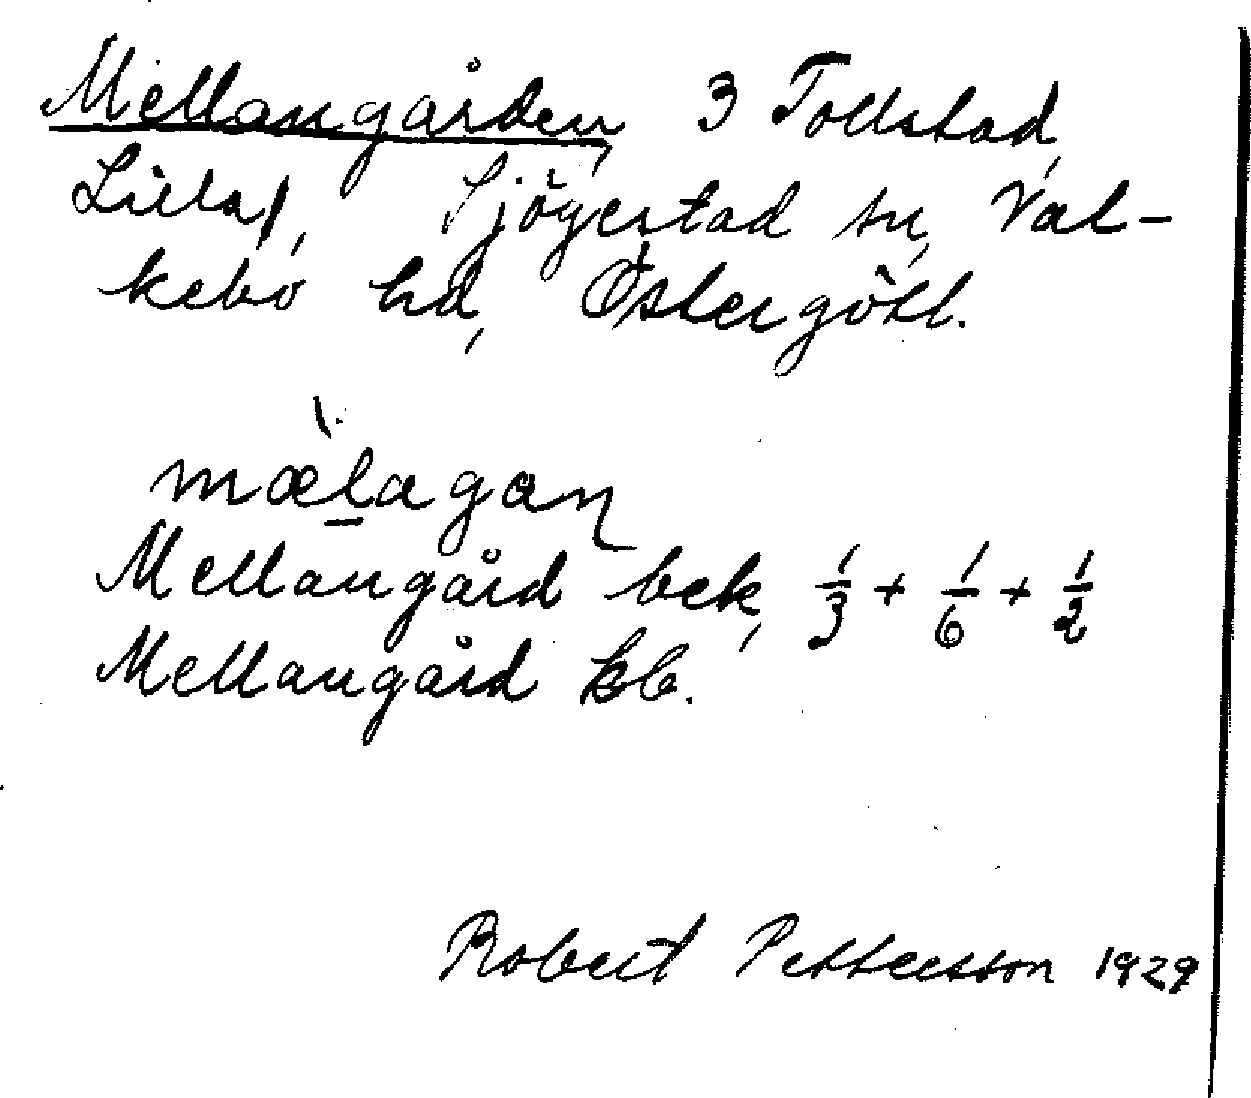 Mellangården, 3 Tollstad,
Lilla, Sjögestad sn, Val-
kebo hd, Östergötl.
mælagan
Mellangård bek, 1/3 + 1/6 + 1/2
Mellangård kb.
Robert Pettersson 1929